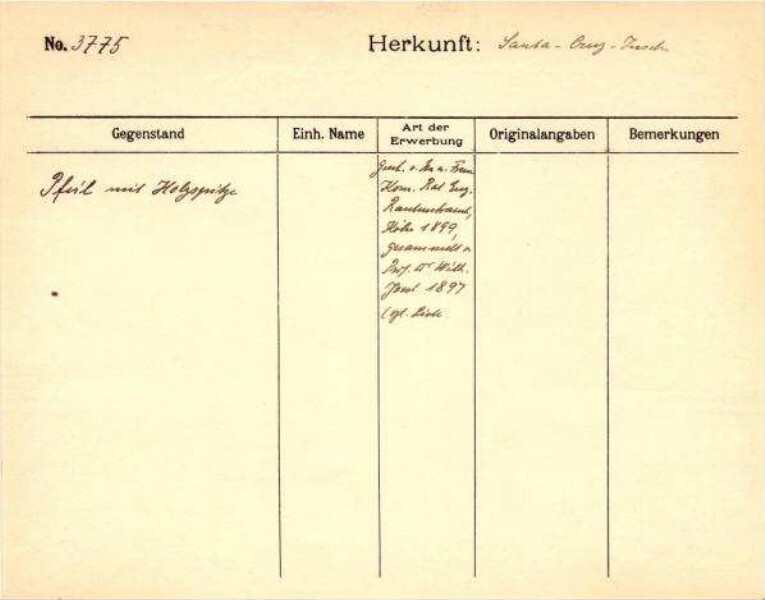 No. 3775
Herkunft: Santa-Cruz-Inseln
Gegenstand
Einh. Name
Art der
Erwerbung
Originalangaben
Bemerkungen
Pfeil mit Holzspitze
Gesch. v. Hn u. Frau
Kom. Rat Eug.
Rautenstrauch,
Köln 1899,
gesammelt v.
Prof. Dr Wilh.
Joest 1897